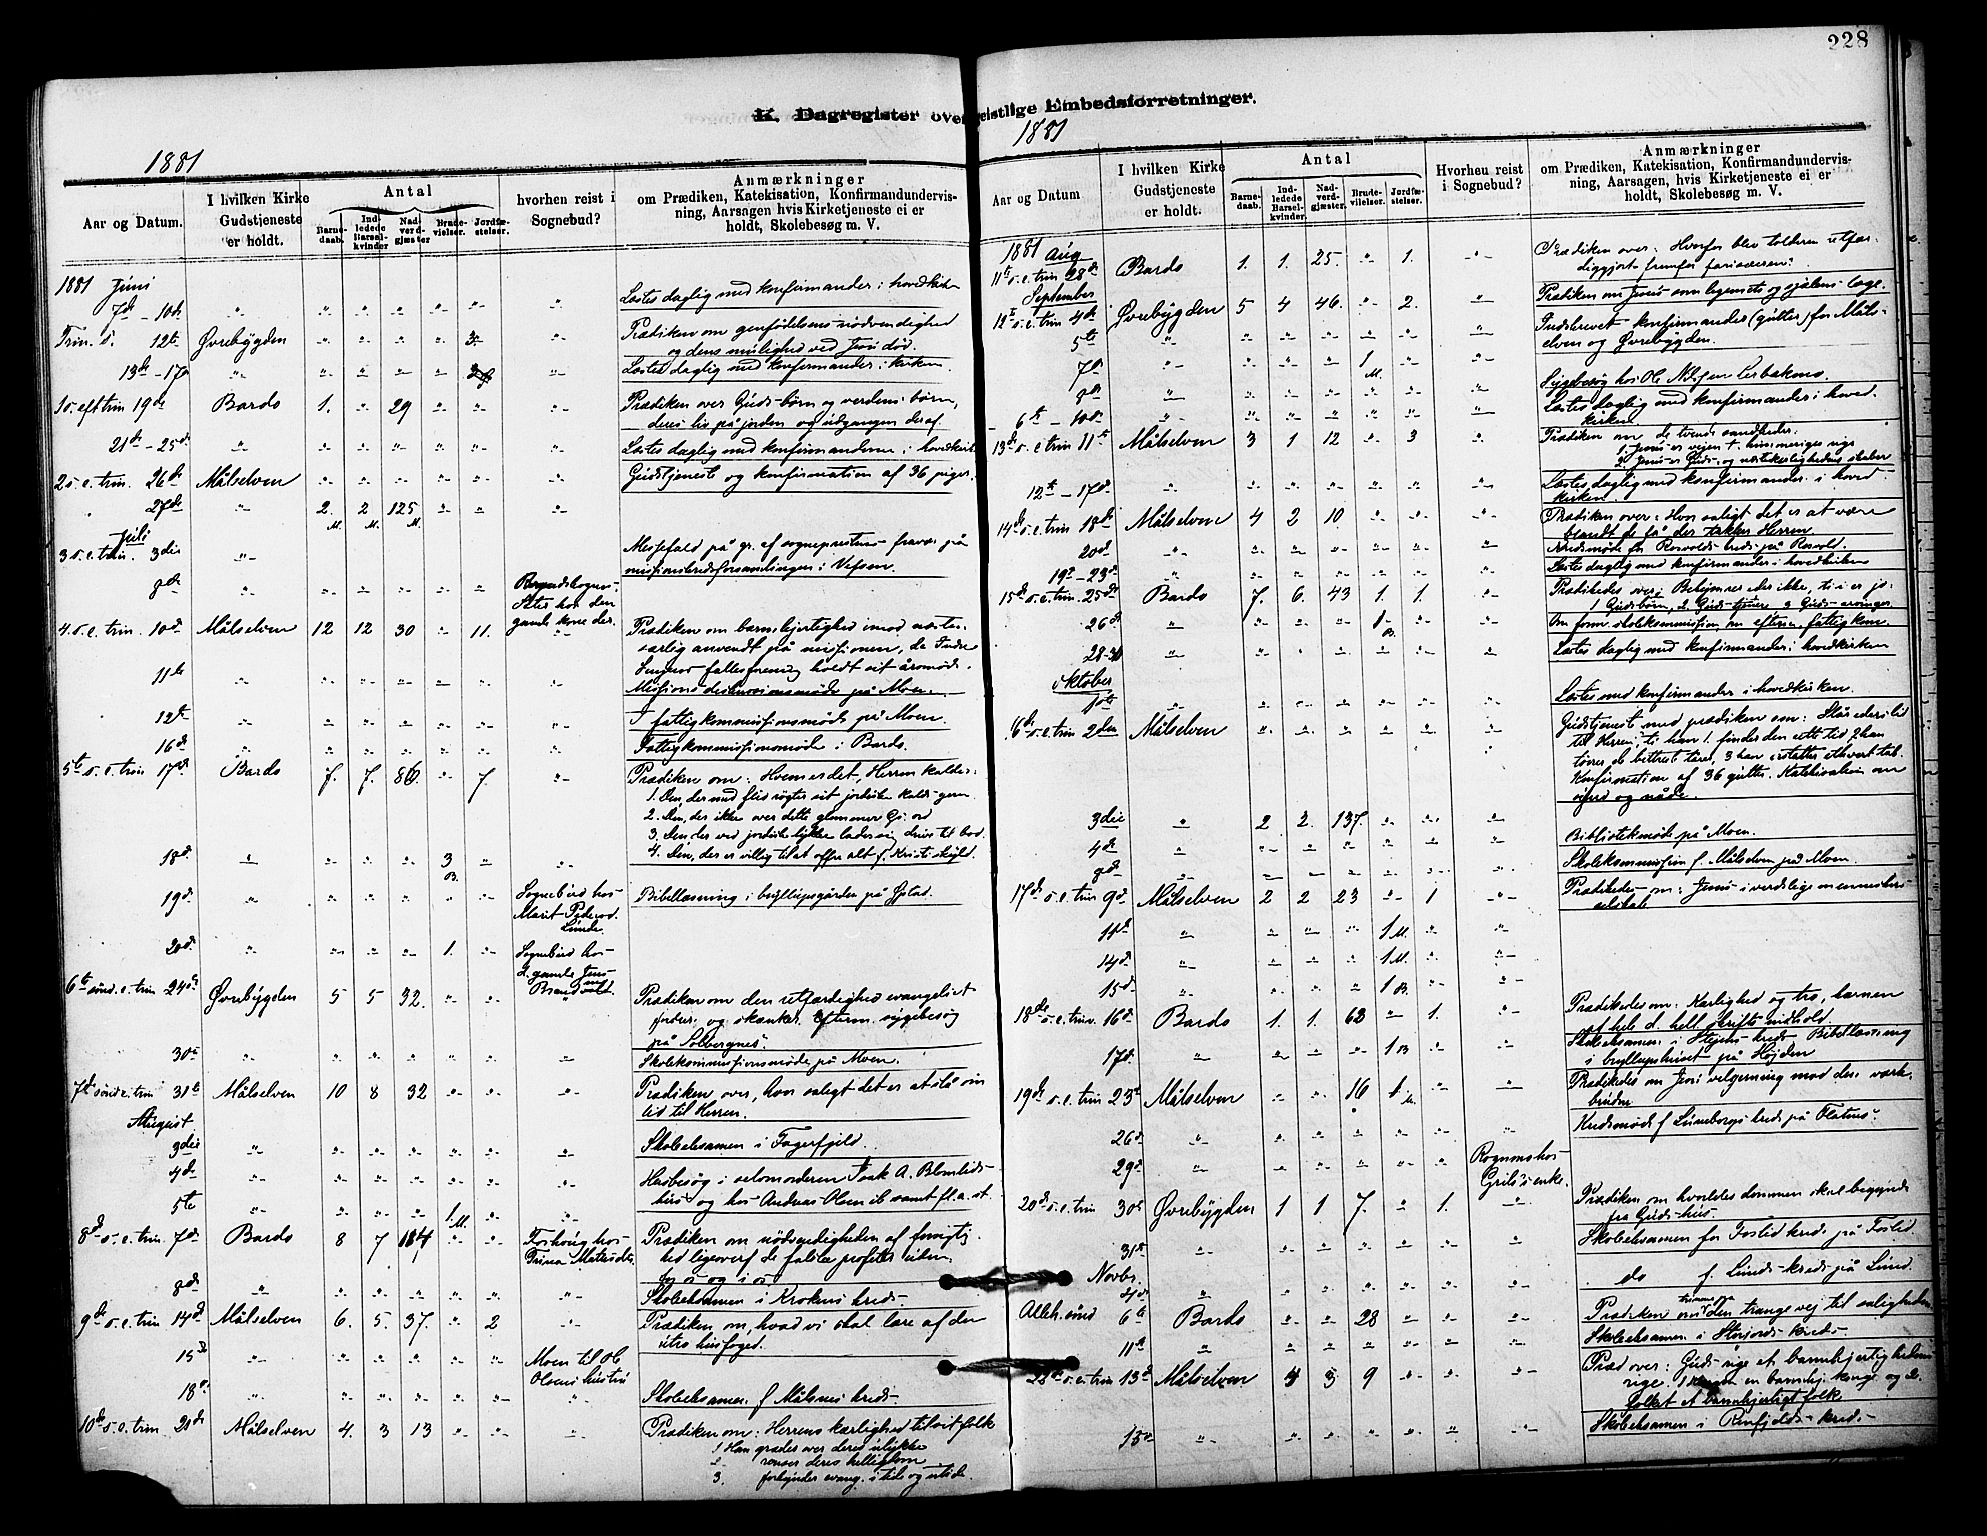 228
K. Dagregister over geistlige Embedsforretninger.
1881
Aar og Datum.
I hvilken Kirke Gudstjeneste er holdt.
Antal
Barnedaab.
Indledede Barselkvinder
Nadverdgjæster
Brudevielser.
Jordfæstelser.
hvorhen reist i Sognebud?
Anmærkninger
om Prædiken, Katekisation, Konfirmandundervisning, Aarsagen hvis Kirketjeneste ei er holdt, Skolebesøg m. V.
1881 Juni
7de - 10de Læstes daglig med konfirmander i hovedkirk
Trin. s. 12te Øvrebygden 3 Prædiken om genfødelsens nødvendighed
og dens mulighed ved Jesu død.
13de - 17de Læstes daglig med konfirmander i kirken
1 s. eft trin 19de Bardo 1. 29 Prædiken over Guds børn og verdens børn,
deres liv på jorden og udgangen deraf.
21de - 25de Læstes daglig med konfirmanderne i hovedkirk
2 s. e. trin. 26de Målselven Gudstjeneste og konfirmation af 36 piger.
27de 2 M. 2 M. 125 M.
Juli
3 s. e. trin. 3die Messefald på gr. af sogneprestens fravær på
missionskredsforsamlingen i Vefsen.
8de
gamle kone der.
4. s. e. trin. 10de Målselven 12 12 30 11. Prædiken om barmhjertighed imod næsten
særlig anvendt på missionen, de Indre
holdt sit årsmøde.
11te Missions møde på Moen.
12te I fattigkommissionsmøde på Moen.
16de Fattigkommissionsmøde i Bardo.
5te s. e. trin 17de Bardo 7. 7. 86 7. Prædiken om: Hvem er det, Herren kalder
1. Den, der med flid røgter sit jordiske kalds gjern
2. Den, der ikke over dette glemmer Gs. ord
3. Den der ved jordiske lykke lader sig drive til bod
4. Den, der er villig til at ofre alt f. Kristi skyld.
18de 3 B.
19de Sognebud hos Marit Pedersd. Lunde. Bibellæsning i bryllupsgården på
20de 1. Sognebud hos d. gamle Jens
6te sønd. e. trin 24de Øvrebygden 5 5 32. Prædiken om den retfærdighed evangeliet
fordrer og skænker. Efterm. sygebesøg
på Solbergnes.
30te Skolekommissionsmøde på Moen.
7de sønd. e. trin 31te Målselven 10 8 32 Prædiken over, hvor saligt det er at slå sin
lid til Herren.
August
3die Skoleeksamen i Fagerfjeld.
4de Husbesøg i selvmorderen Isak A. Blomlids
hus og hos Andreas Olsen samt fl. a. st.
5te 1 M.
8de s. e. trin. 7de Bardo 8 7 184 Prædiken om nødvendigheden af forsigtig
hed ligeoverf. de falske profeter uden
for os og i os
8de Skoleeksamen i Krokens kreds
9de s. e. trin 14de Målselven 6. 5. 37. 2 Prædiken om, hvad vi skal lære af den
utro husfoged.
15de Moen til Ol. Olsens hustru
18de Skoleeksamen f. Målsnes kreds
10de s. e. trin. 21de Målselven 4. 3 13 Prædiken om: Herrens kærlighed til sit folk
1 Han græder over deres ulykke
2 renser deres helligdom
3. forkynder evang. i tide og utide.
1881
Aar og Datum
I hvilken Kirke Gudstjeneste er holdt.
Antal
Barnedaab.
Indledede Barselkvinder.
Nadverdgjæster.
Brudevielser.
Jordfæstelser.
Hvorhen reist i Sognebud?
Anmærkninger
om Prædiken, Katekisation, Konfirmandundervisning, Aarsagen, hvis Kirketjeneste ei er holdt, Skolebesøg m. V.
1881 Aug
11te s. e. trin 28de Bardo 1. 1. 25. 1. Prædiken over: Hvorfor blev tolderen retfær
diggjort fremfor farisæeren?
September
12te s. e. trin 4de Øvrebygden 5 4 46. 2. Prædiken om Jesus som legemets og sjælens læge.
5te Indskrevet konfirmander (gutter) for Måls
elven og Øvrebygden.
7de 1 M.
8de Sygebesøg hos Ol. Nilsen
6te - 10de Læstes daglig med konfirmander i hoved
kirken
13de s. e. trin 11te Målselven 3 1 12 3 Prædiken om de tvende sandheder:
1. Jesus er vejen t. himmeriges rige
12te - 17de Læstes daglig med konfirmander i hoved
kirken
14de s. e. trin 18de Målselven 4 2 10 Prædiken over: Hvor saligt det er at være
blandt de få der takker Herren
20de Kredsmøde for Rosvolds kreds på Rosvold.
19de - 23de Læstes daglig med konfirmander i hovedkirken
15de s. e. trin. 25de Bardo 7. 6. 43 1. 1. Prædikedes over: Bekymrer eder ikke, ti i er jo
1 Guds børn, 2 Guds tjenere 3 Guds arvinger
26de 1 B. Om form. skolekommission om efterm. fattigkom.
28-30 Læstes daglig med konfirmander i hovedkirken
Oktober
1ste Læstes med konfirmander i hovedkirken.
16de s. e. trin 2den Målselven Gudstjeneste med prædiken om: Slå eders lid
til Herren, ti han 1. finder den rette tid 2 han
tørrer de bittreste tårer, 3 han erstatter ethvert tab.
Konfirmation af 36 gutter. Katekisation om
synd og nåde.
3die 2 2. 137.
4de Bibliotekmøde på Moen.
8de Skolekommission f. Målselven på Moen.
17de s. e. trin 9de Målselven 2 2 23 1 Prædikedes om: Jesus i verdslige menneskers
selskab
11te 1 M.
14de 1 M.
15de 1 B.
18de s. e. trin. 16de Bardo 1. 1. 63 1. Prædikedes om: Kærlighed og tro, kærnen
af hele d. hell. skrifts indhold.
17de 1 B Skoleeksamen i kreds Bibellæsning
i bryllupshuset på Højden
19de s. e. trin 23de Målselven 16 1 M. Prædikedes om Jesu velgerning mod den værk
brudne
26de Kredsmøde f. Luneborgs kreds på Olatun.
29de
20de s. e. trin 30te Øvrebygden 1 1 7. 1. Prædiken om hvorledes dommen skal begynde
fra Guds hus.
31te Skoleeksamen for Fosli kreds på Foslid.
Novbr.
4de do f. Lunds kreds på Lund.
Alleh. sønd 6te Bardo 28 Prædiken om den trange vej til saligheden
11te Skoleeksamen i Storjords kreds
22de s. e. trin 13de Målselven 4 3 9 Præd over: Guds rige et barmhjertighedens
rige 1 Kongen en barmhj. konge og 2.
folket et barmhjertigt folk
15de Skoleeksamen i kreds